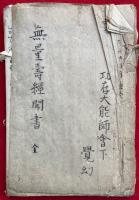 功存大能師會下
覺幻
無量壽經聞書 全